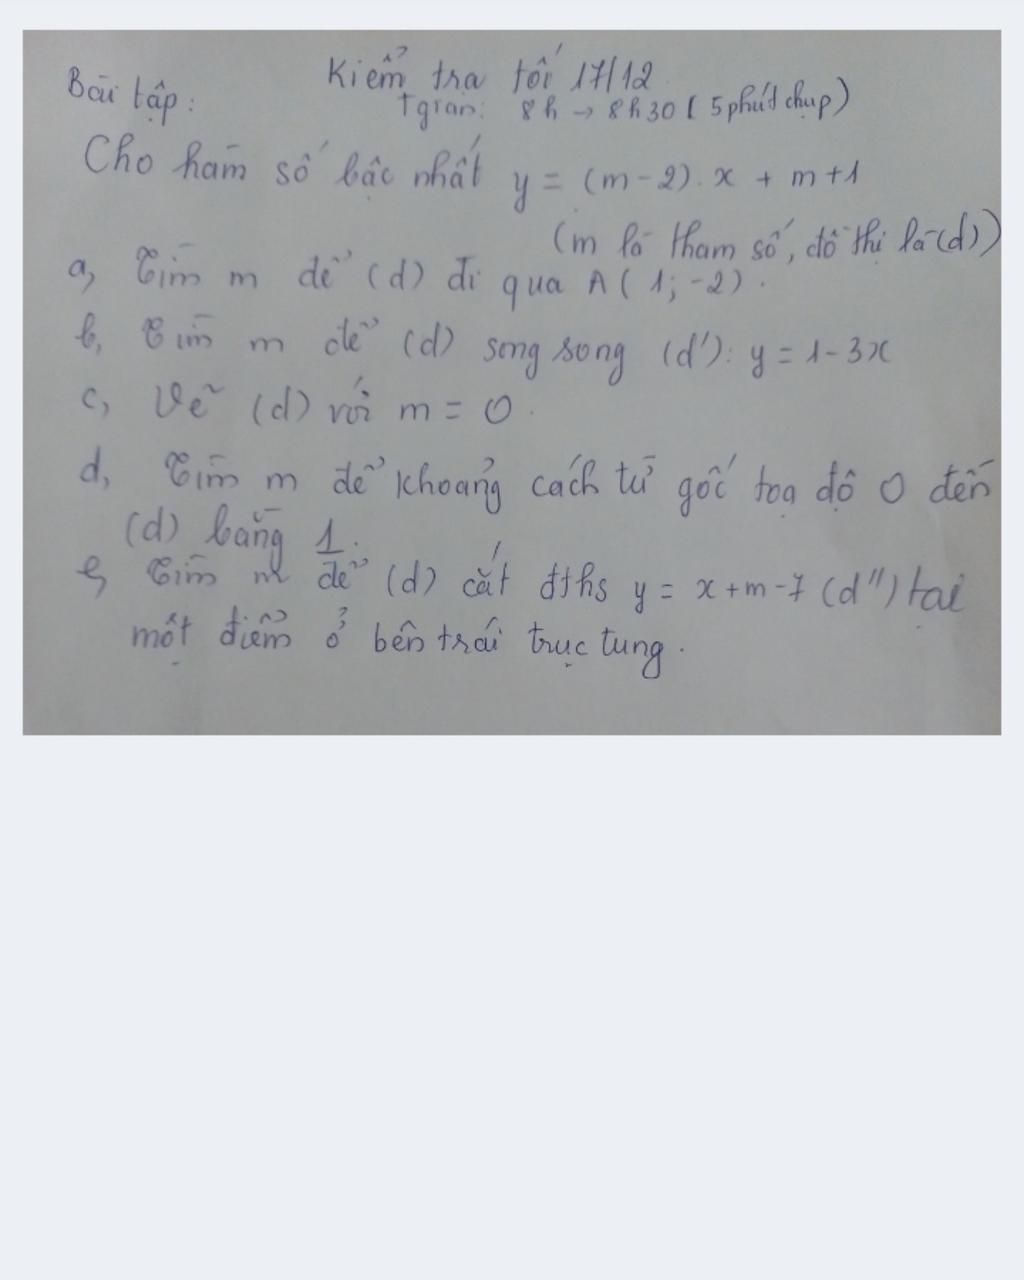 Kiểm tra tối 17/12
Bài tập:
Tgian: 8h → 8h30 ( 5 phút chụp)
Cho hàm số bậc nhất y = (m-2).x + m+1
(m là tham số, đồ thị là (d))
a, Tìm m để (d) đi qua A( 1; -2).
b, Tìm m để (d) song song (d'): y = 1-3x
c, Vẽ (d) với m = 0.
d, Tìm m để khoảng cách từ gốc toạ độ O đến
(d) bằng 1.
e, Tìm m để (d) cắt đths y = x+m-7 (d'') tại
một điểm ở bên trái trục tung.